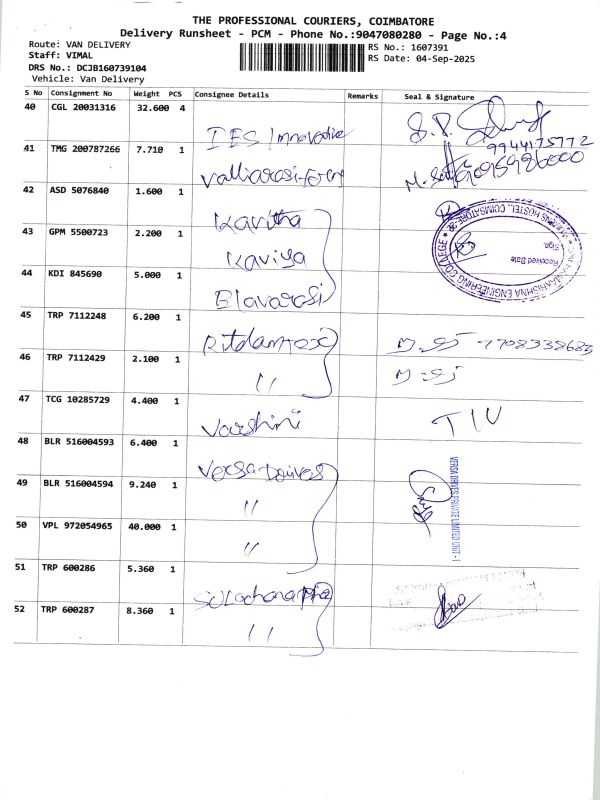 THE PROFESSIONAL COURIERS, COIMBATORE
Delivery Runsheet - PCM - Phone No.:9047080280 - Page No.:4
Route: VAN DELIVERY
Staff: VIMAL
DRS No.: DCJB160739104
Vehicle: Van Delivery
RS No.: 1607391
RS Date: 04-Sep-2025
S No Consignment No Weight PCS Consignee Details Remarks Seal & Signature
40 CGL 20031316 32.600 4 IES Innovative
9944175772
41 TMG 200787266 7.710 1
42 ASD 5076840 1.600 1 Kavitha
43 GPM 5500723 2.200 1 Kaviya
44 KDI 845690 5.000 1 Elavarasi
Received Date
Sign
45 TRP 7112248 6.200 1
46 TRP 7112429 2.100 1 "
47 TCG 10285729 4.400 1 Varshini
48 BLR 516004593 6.400 1 Versa Drives
49 BLR 516004594 9.240 1 "
50 VPL 972054965 40.000 1 "
VERSA DRIVES PRIVATE LIMITED UNIT - 1
51 TRP 600286 5.360 1
52 TRP 600287 8.360 1 "